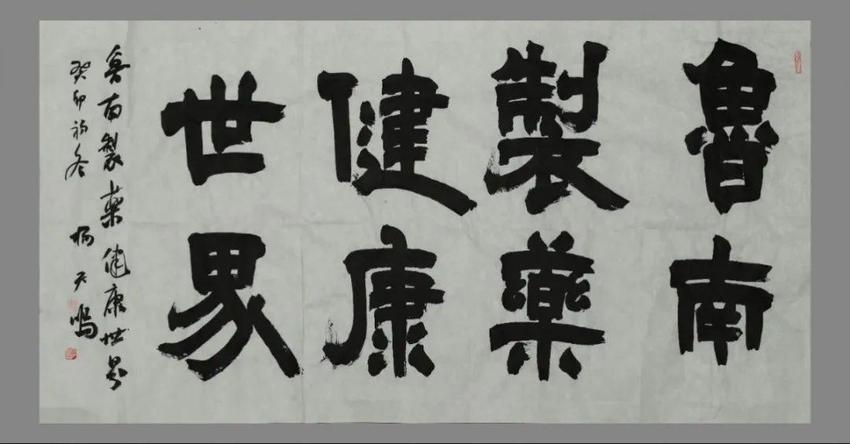 魯南
製藥
健康
世界
魯南製藥健康世界
癸卯初冬 楊天鳴